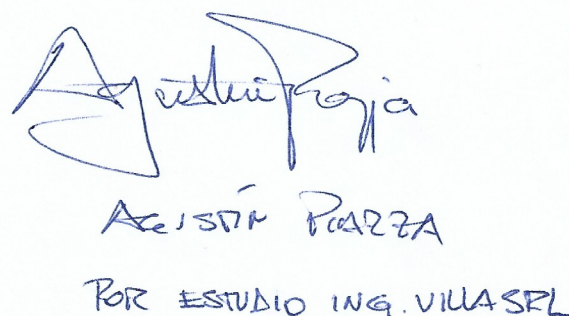 Agustín Piazza
AGUSTÍN PIAZZA
POR ESTUDIO ING. VILLA SRL